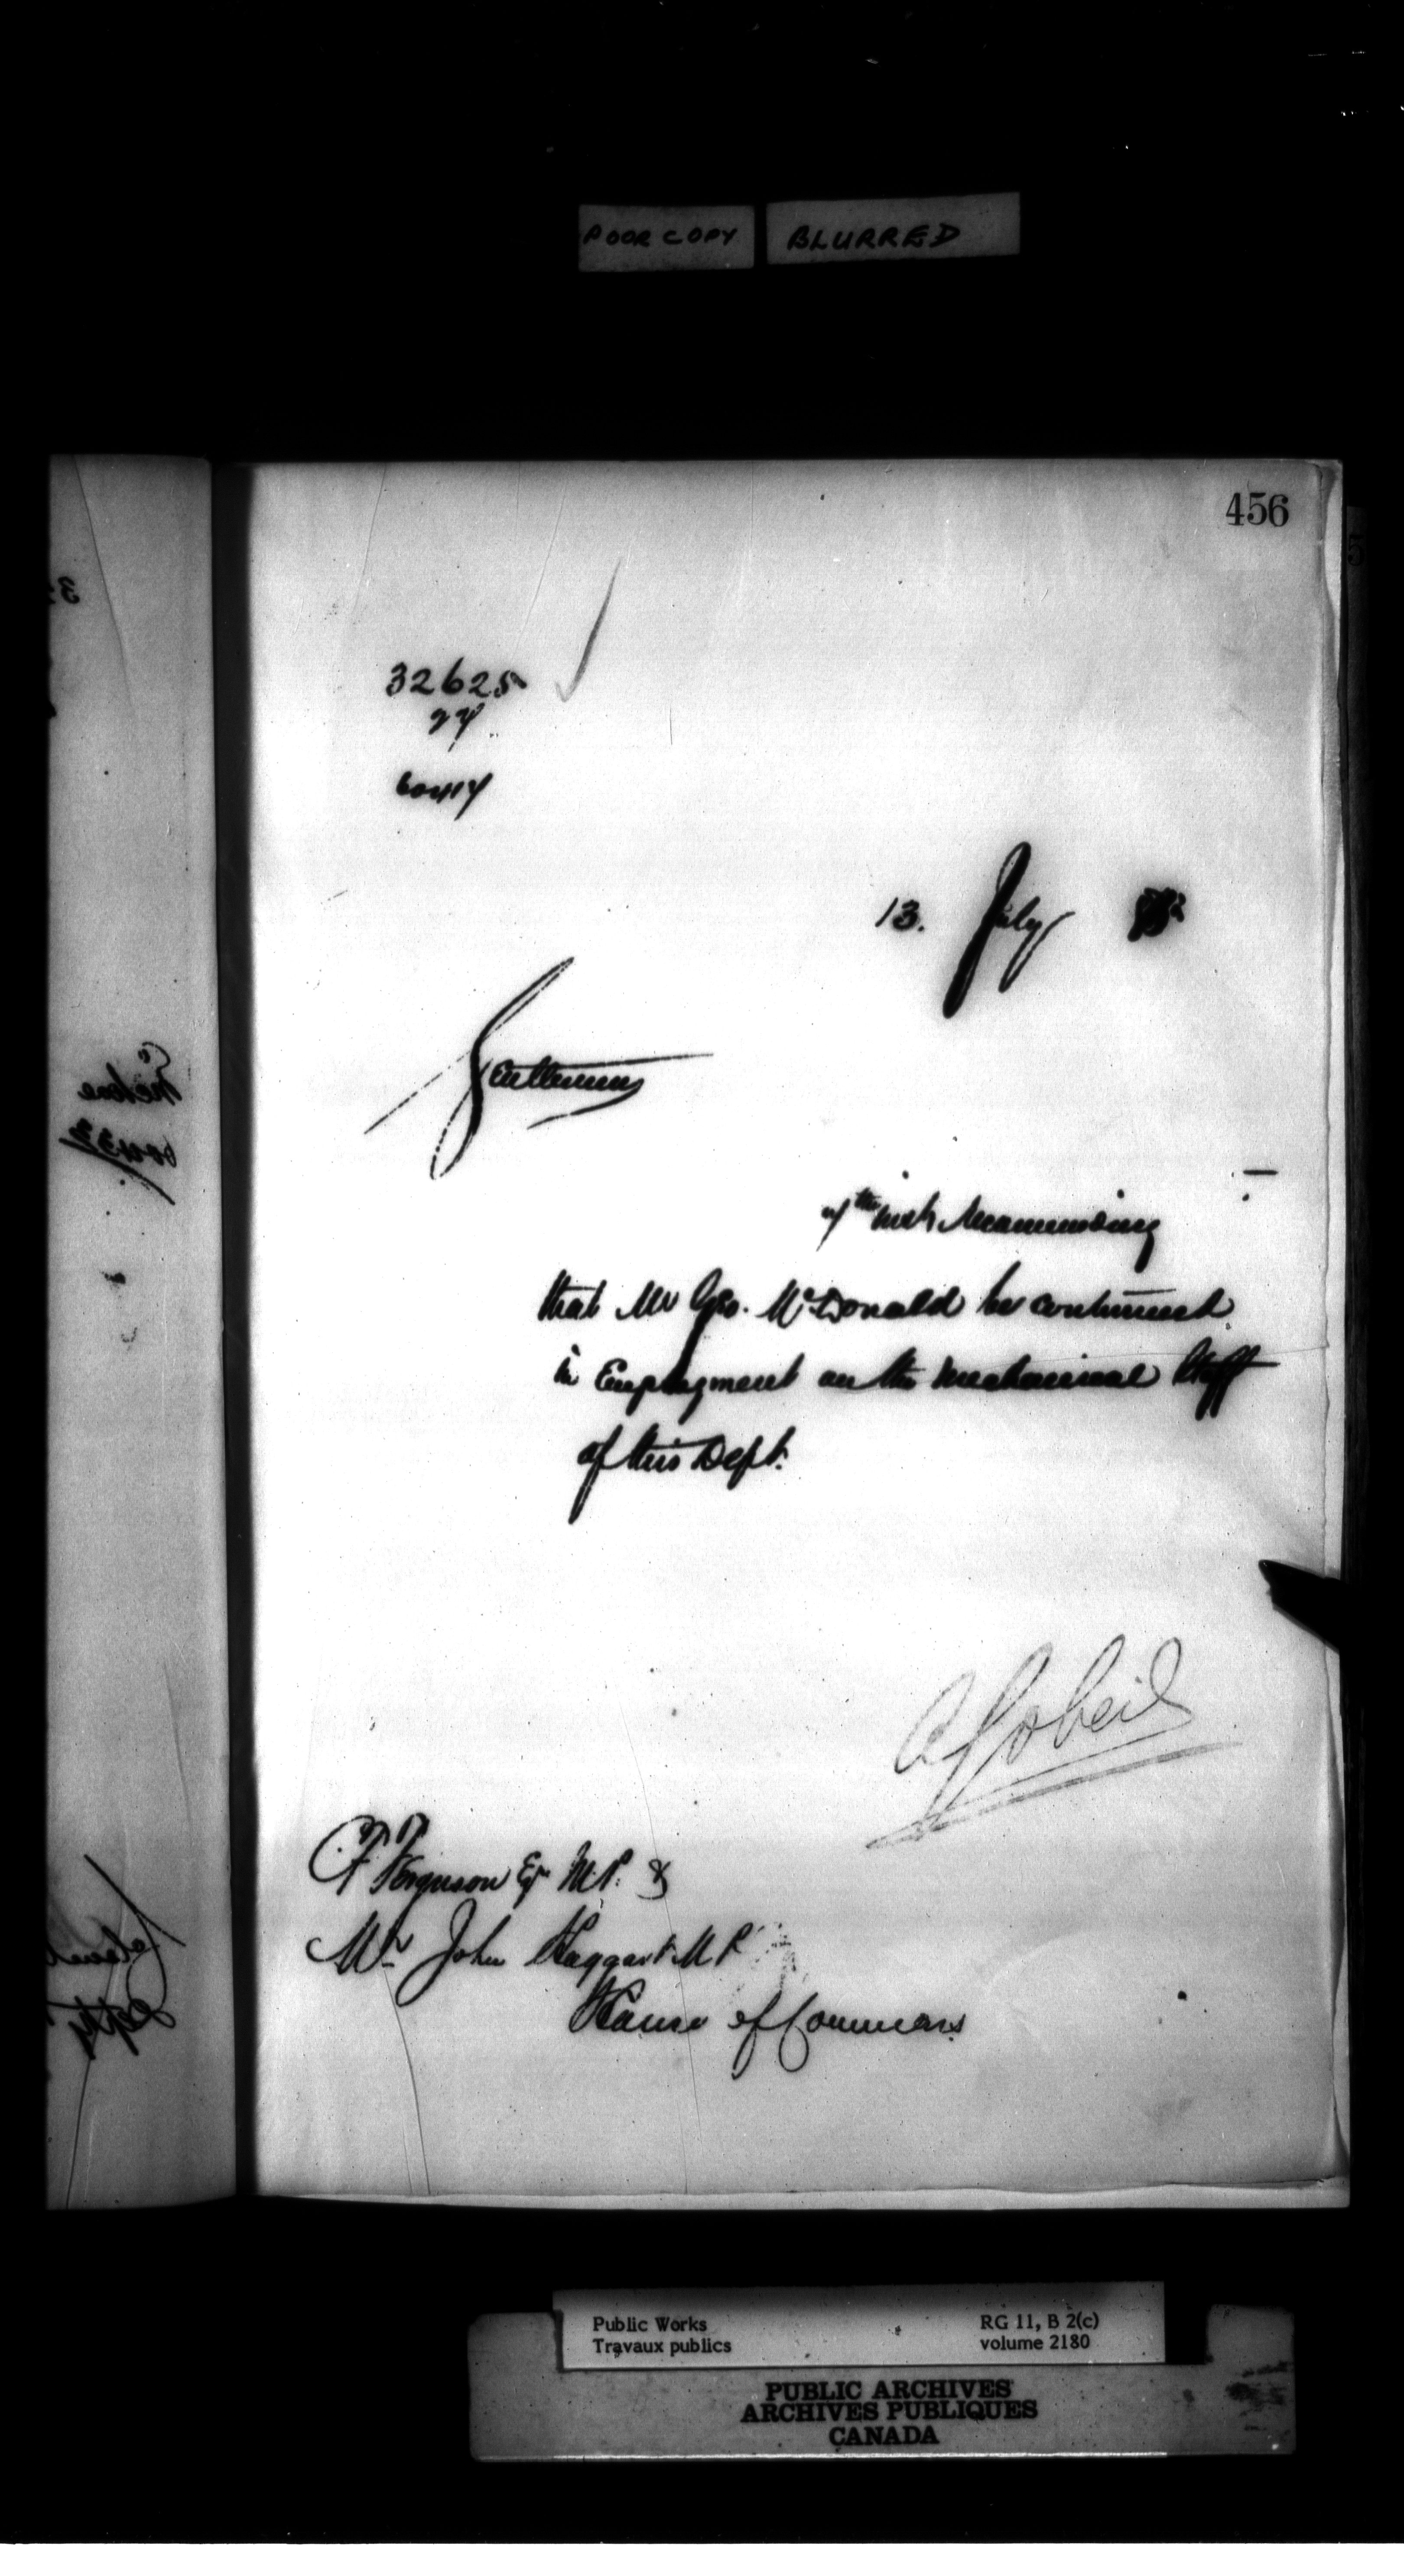 POOR COPY BLURRED
456
32625
60414
13. July
Gentlemen
7th inst. recommending
that Mr Geo. McDonald be continued
in Employment on the Mechanical Staff
of this Dept.
A Gobeil
C F Ferguson Esq M.P. &
Mr John Haggart M P
House of Commons
Public Works RG 11, B 2(c)
Travaux publics volume 2180
PUBLIC ARCHIVES
ARCHIVES PUBLIQUES
CANADA